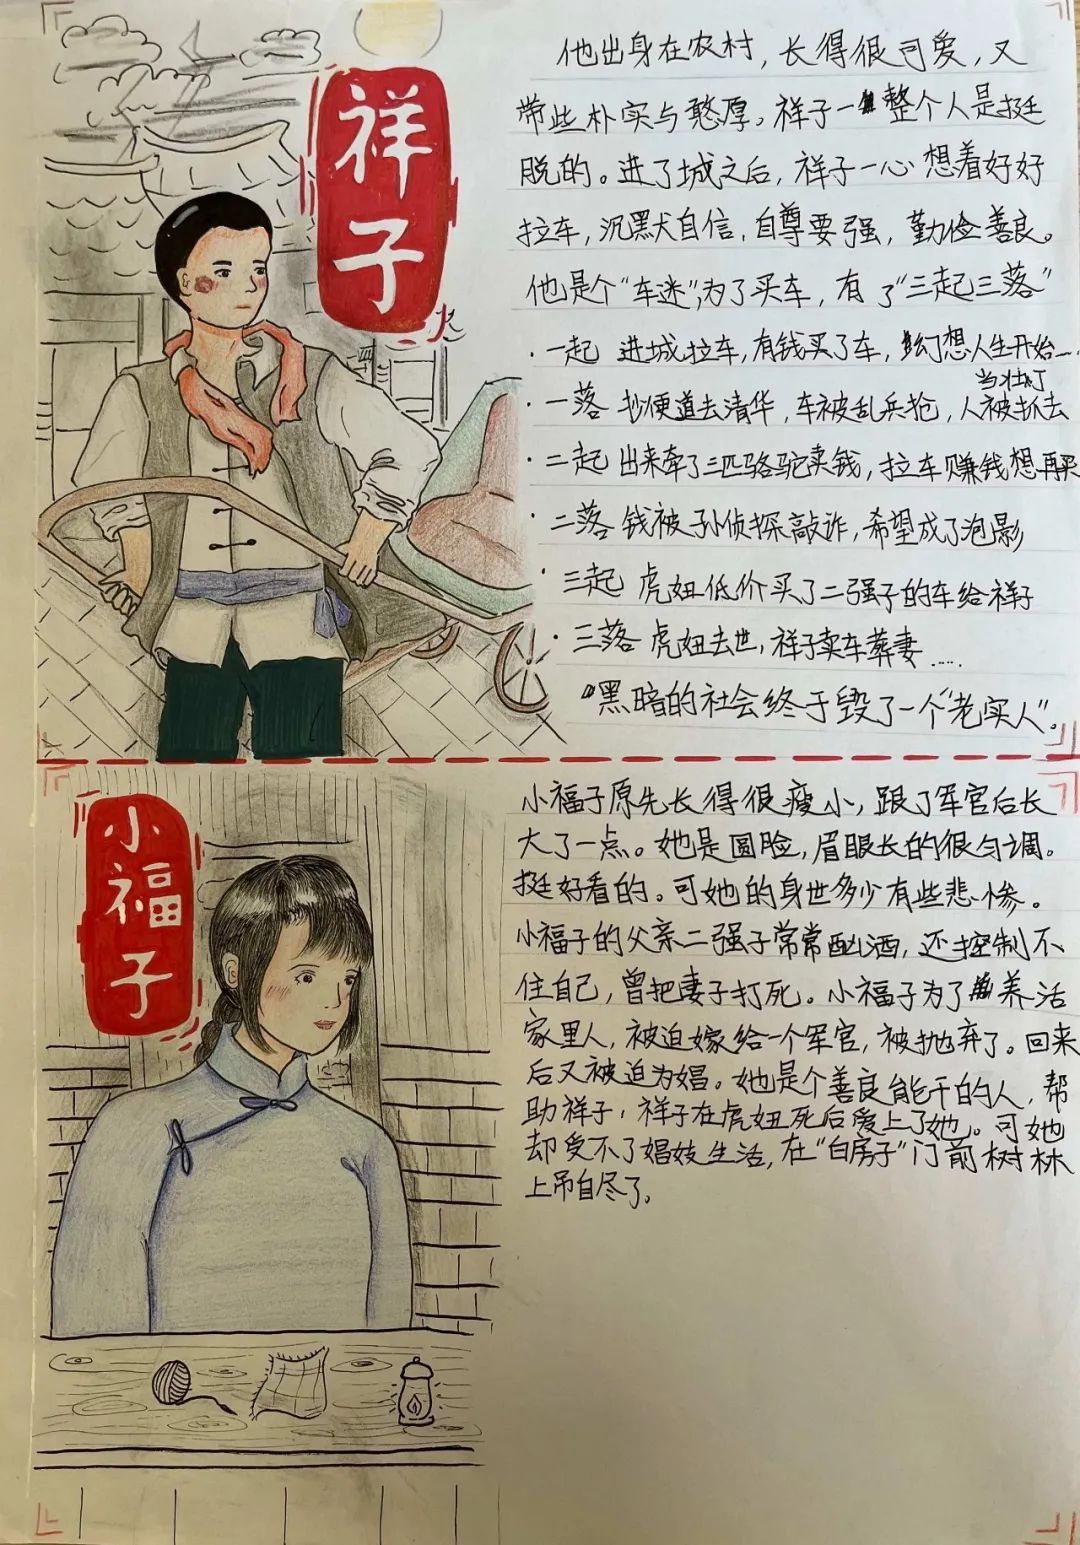 祥子
他出身在农村，长得很可爱，又
带些朴实与憨厚。祥子一整个人是挺
脱的。进了城之后，祥子一心想着好好
拉车，沉默自信，自尊要强，勤俭善良。
他是个“车迷”，为了买车，有了“三起三落”
·一起 进城拉车，有钱买了车，幻想人生开始……
当壮丁
·一落 抄便道去清华，车被乱兵抢，人被抓去
·二起 出来牵了三匹骆驼卖钱，拉车赚钱想再买
·二落 钱被孙侦探敲诈，希望成了泡影
·三起 虎妞低价买了二强子的车给祥子
·三落 虎妞去世，祥子卖车葬妻……
“黑暗的社会终于毁了一个“老实人”。
小福子
小福子原先长得很瘦小，跟了军官后长
大了一点。她是圆脸，眉眼长的很匀调。
挺好看的。可她的身世多少有些悲惨。
小福子的父亲二强子常常酗酒，还控制不
住自己，曾把妻子打死。小福子为了养活
家里人，被迫嫁给一个军官，被抛弃了。回来
后又被迫为娼。她是个善良能干的人，帮
助祥子，祥子在虎妞死后爱上了她。可她
却受不了娼妓生活，在“白房子”门前树林
上吊自尽了。